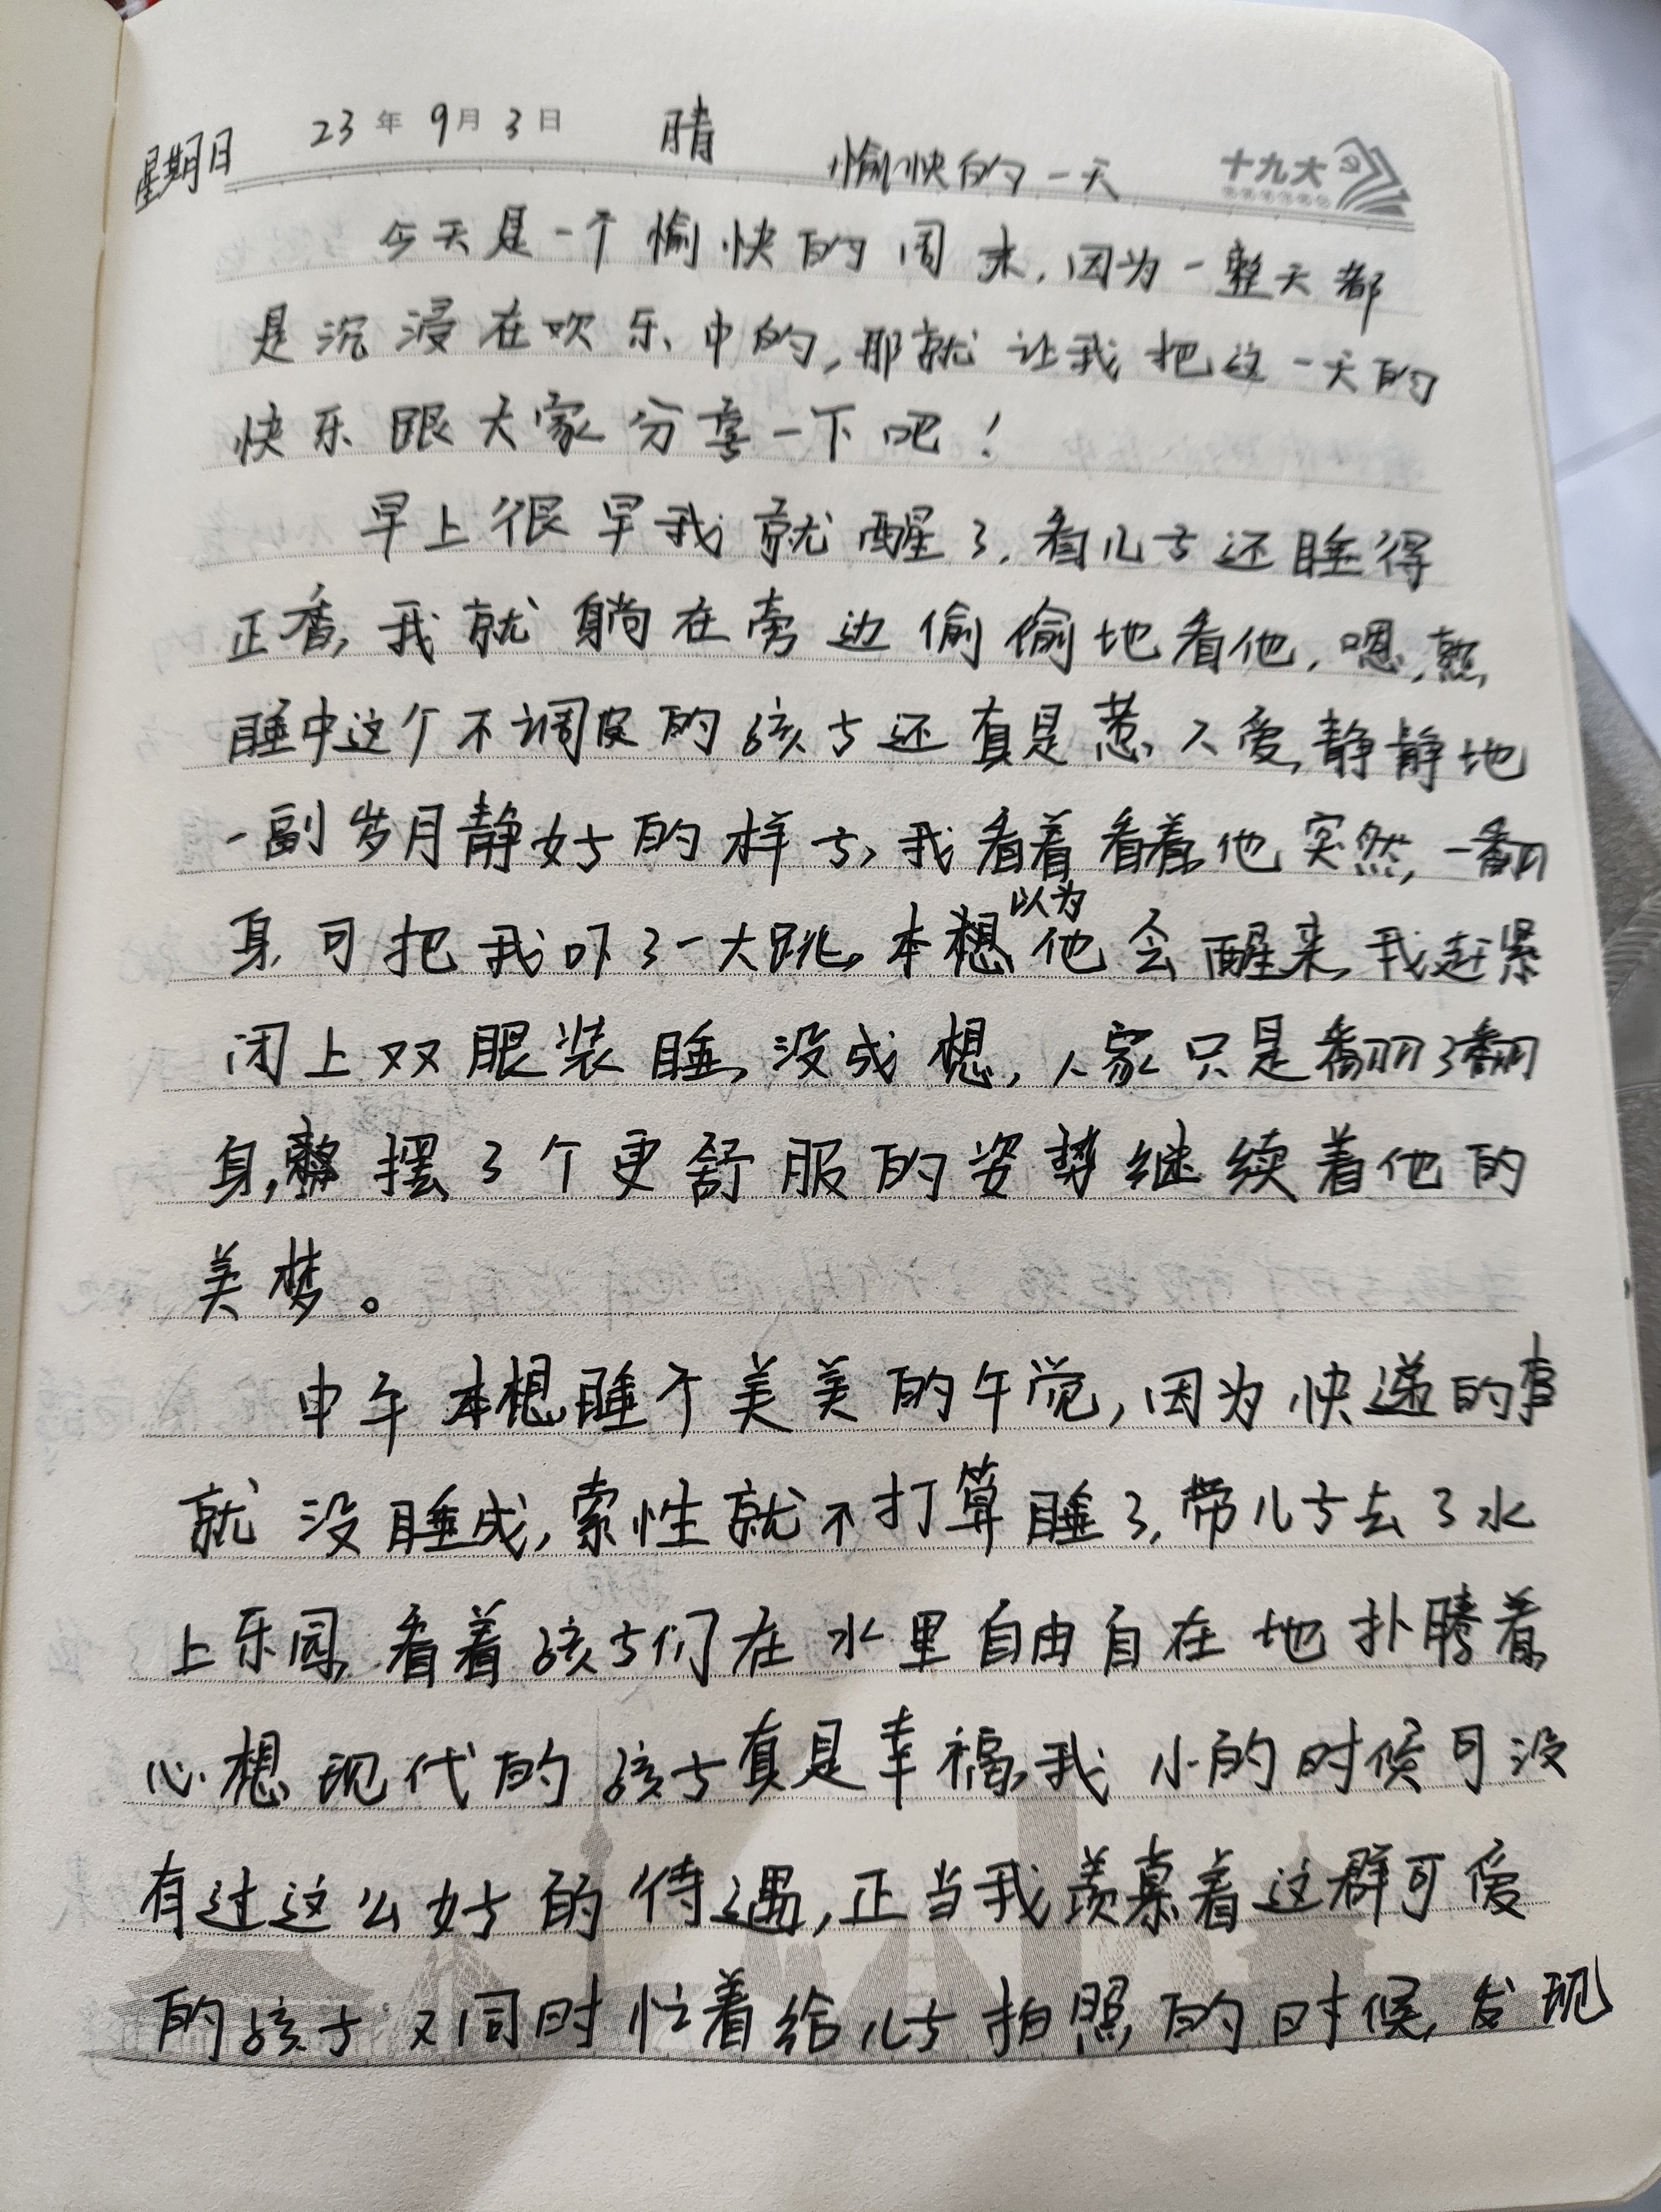 星期日 23年9月3日 晴
愉快的一天 十九大
今天是一个愉快的周末,因为一整天都
是沉浸在欢乐中的,那就让我把这一天的
快乐跟大家分享一下吧!
早上很早我就醒了,看儿子还睡得
正香,我就躺在旁边偷偷地看他,嗯,熟
睡中这个不调皮的孩子还真是惹人爱,静静地
一副岁月静好的样子,我看着看着,他突然,一翻
身,可把我吓了一大跳,本想以为他会醒来,我赶紧
闭上双眼装睡,没成想,人家只是翻了翻
身,摆了个更舒服的姿势继续着他的
美梦。
中午本想睡个美美的午觉,因为快递的事
就没睡成,索性就不打算睡了,带儿子去了水
上乐园,看着孩子们在水里自由自在地扑腾着,
心想现代的孩子真是幸福,我小的时候可没
有过这么好的待遇,正当我羡慕着这群可爱
的孩子又同时忙着给儿子拍照的时候,发现